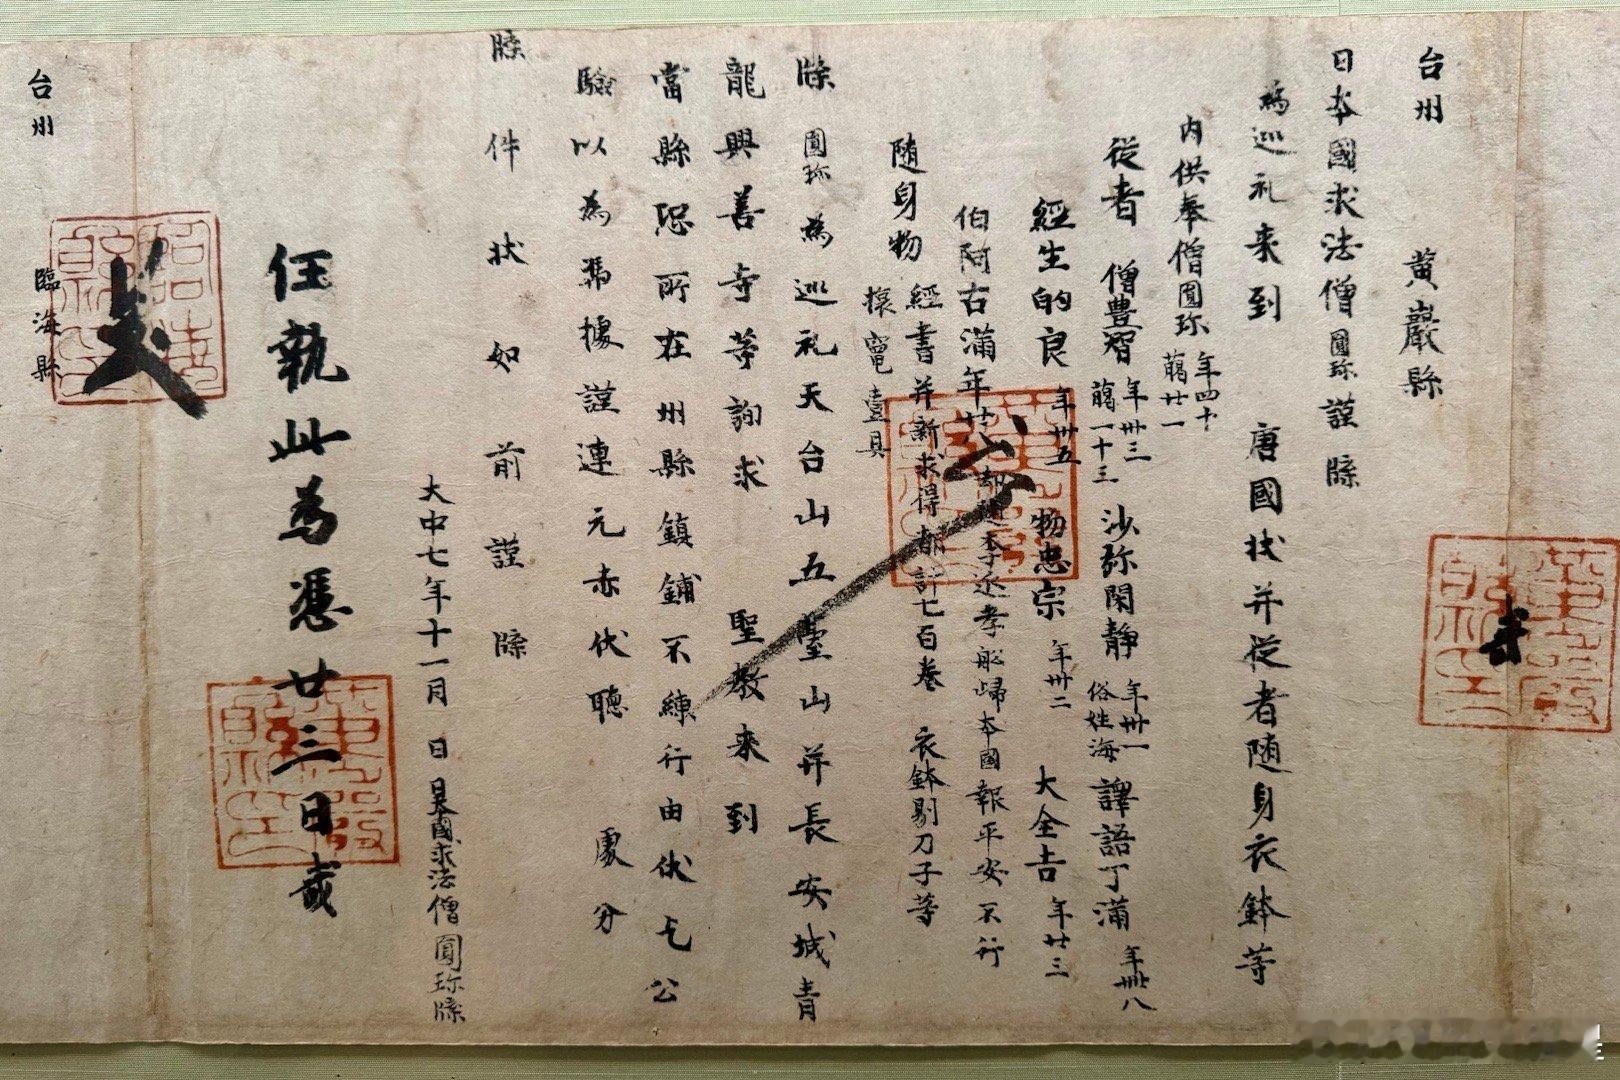 台州 黄巖縣
日本國求法僧圓珎謹牒
為巡礼来到 唐國状并従者随身衣鉢等
内供奉僧圓珎 年四十 﨟廿一
従者 僧豊智 年卅三 﨟一十三 沙弥閑静 年卅一 俗姓海 譯語丁滿 年卌八
經生的良 年卅五 物忠宗 年卅二 大全吉 年廿三
伯阿古滿 年廿八 却随李延孝舩歸本國報平安不行
随身物 經書并新求得都計七百卷 衣鉢剔刀子等
壹具
牒圓珎為巡礼天台山五臺山并長安城青
龍興善寺等詢求 聖教来到
當縣恐所在州縣鎮鋪不練行由伏乞公
驗以為馮據謹連元赤伏聽 處分
牒件状如前謹牒
大中七年十一月 日 日本國求法僧圓珎牒
任執此為憑廿三日
台州 臨海縣